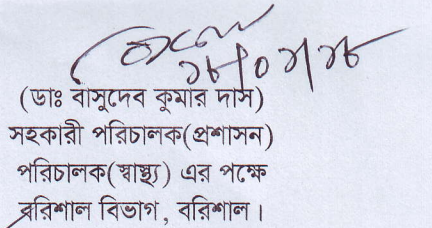 ১৮/০৭/১৮
(ডাঃ বাসুদেব কুমার দাস)
সহকারী পরিচালক(প্রশাসন)
পরিচালক(স্বাস্থ্য) এর পক্ষে
বরিশাল বিভাগ, বরিশাল।